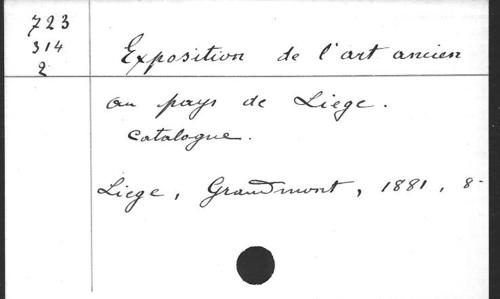 723
314
2
Exposition de l'art ancien
au pays de Liege.
Catalogue.
Liege, Grandmont, 1881, 8-